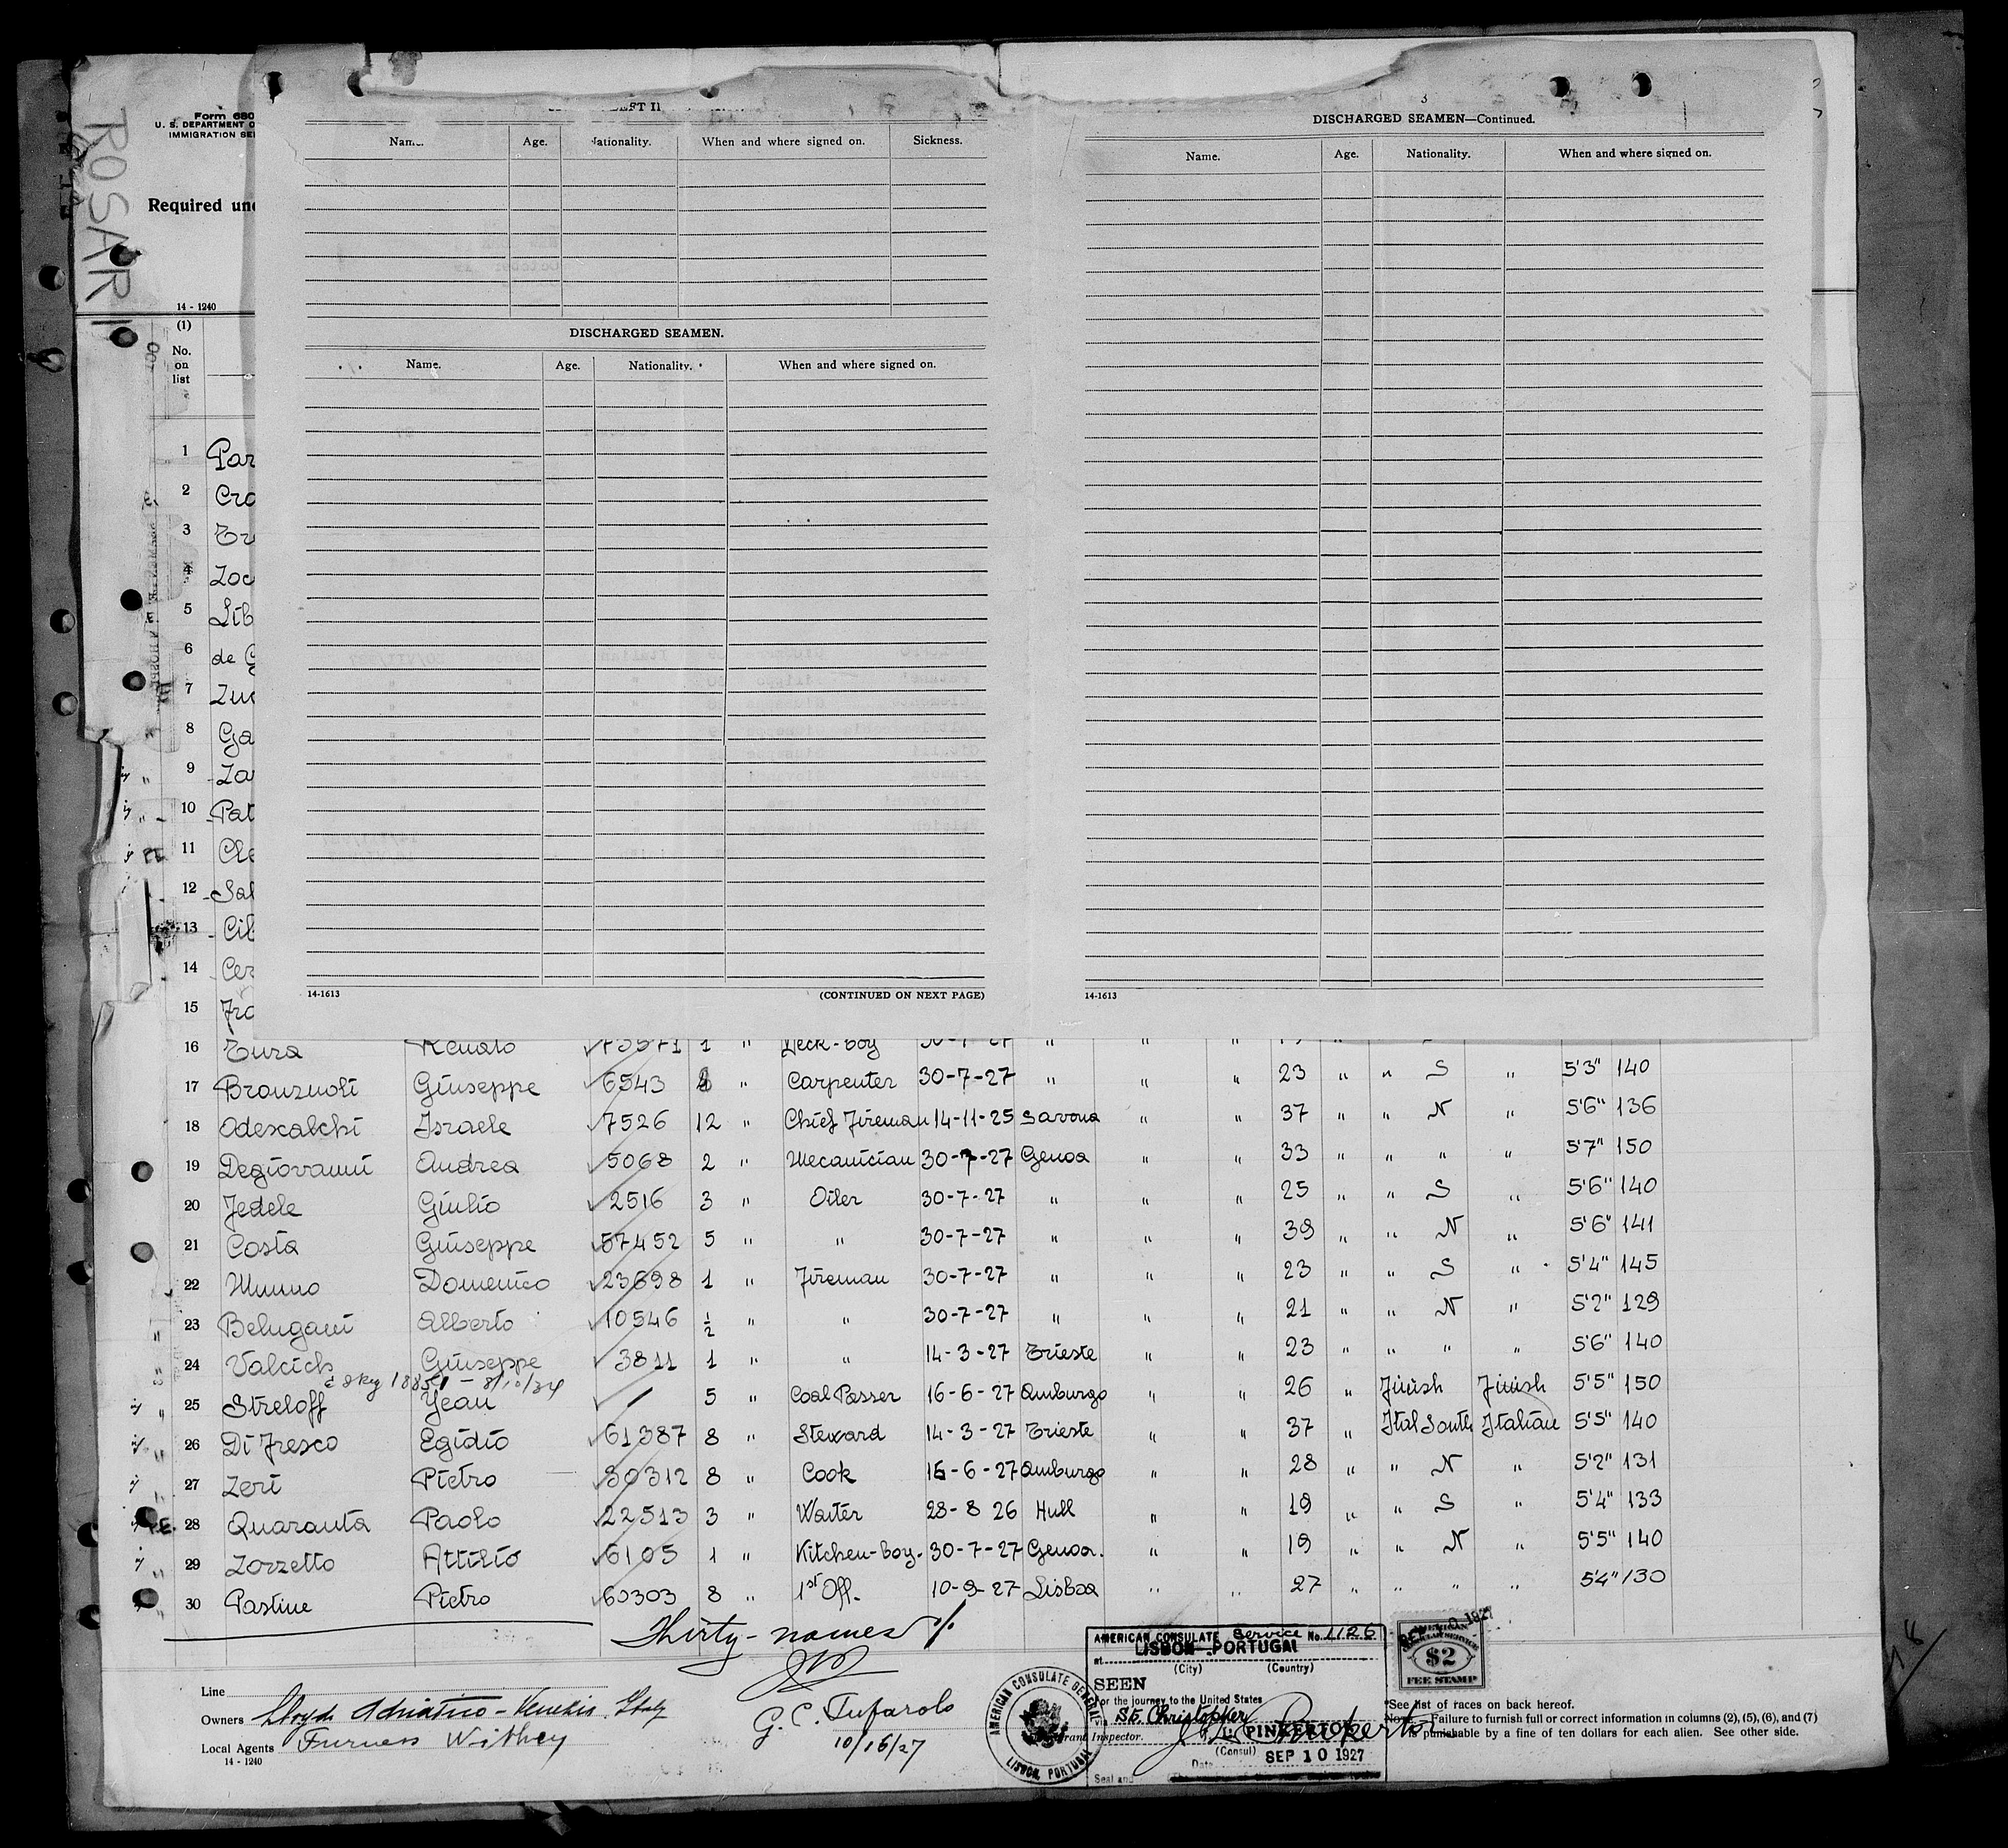 ROSARI
Form 680
U. S. DEPARTMENT O
IMMIGRATION SE
Required und
14 - 1240
(1)
No.
on
list
Name. Age. Nationality. When and where signed on. Sickness.
DISCHARGED SEAMEN.
Name. Age. Nationality. When and where signed on.
14-1613 (CONTINUED ON NEXT PAGE)
3
DISCHARGED SEAMEN—Continued.
Name. Age. Nationality. When and where signed on.
14-1613
1 Par
2 Cro
3 Tr
4 Zoc
5 Lib
6 de G
7 Zuc
8 Ga
9 Zar
10 Pat
11 Cle
12 Sal
13 Cil
14 Cer
15 Fra
16 Tura Renato 73571 1 " Deck-boy 30-7-27 " " "
17 Bronzuoli Giuseppe 6543 " Carpenter 30-7-27 " " " 23 " " S " 5'3" 140
18 Odescalchi Israele 7526 12 " Chief Fireman 14-11-25 Savona " " 37 " " N " 5'6" 136
19 Degiovanni Andrea 5068 2 " Mecanician 30-7-27 Genoa " " 33 " " " " 5'7" 150
20 Fedele Giulio 2516 3 " Oiler 30-7-27 " " " 25 " " S " 5'6" 140
21 Costa Giuseppe 57452 5 " " 30-7-27 " " " 39 " " N " 5'6" 141
22 Munno Domenico 23698 1 " Fireman 30-7-27 " " " 23 " " S " 5'4" 145
23 Belugani Alberto 10546 1/2 " " 30-7-27 " " " 21 " " N " 5'2" 129
24 Valcich Giuseppe 3811 1 " " 14-3-27 Trieste " " 23 " " " " 5'6" 140
25 Streloff Jean 5 " Coal Passer 16-6-27 Amburgo " " 26 " Finish Finish 5'5" 150
26 Di Fresco Egidio 61387 8 " Steward 14-3-27 Trieste " " 37 " Ital South Italian 5'5" 140
27 Zeri Pietro 80312 8 " Cook 16-6-27 Amburgo " " 28 " " N " 5'2" 131
28 Quaranta Paolo 22513 3 " Waiter 28-8 26 Hull " " 19 " " S " 5'4" 133
29 Zorzetto Attilio 6105 1 " Kitchen-boy. 30-7-27 Genoa. " " 19 " " N " 5'5" 140
30 Pastine Pietro 60303 8 " 1st Off. 10-9-27 Lisboa " " 27 " " " " 5'4" 130
Thirty-names
Line
Owners Lloyd Adriatico - Venezia. Italy
Local Agents Furness Withey
14 - 1240
G. C. Tufarolo
10/16/27
AMERICAN CONSULATE GENERAL
LISBON, PORTUGAL
AMERICAN CONSULATE Service No. 1126
at LISBON - PORTUGAL
(City) (Country)
SEEN
For the journey to the United States
St. Christopher
PINKERTON
(Consul)
Date SEP 10 1927
Seal and
Inspector.
AMERICAN
CONSULAR SERVICE
$2
FEE STAMP
*See list of races on back hereof.
NOTE.—Failure to furnish full or correct information in columns (2), (5), (6), and (7)
is punishable by a fine of ten dollars for each alien. See other side.